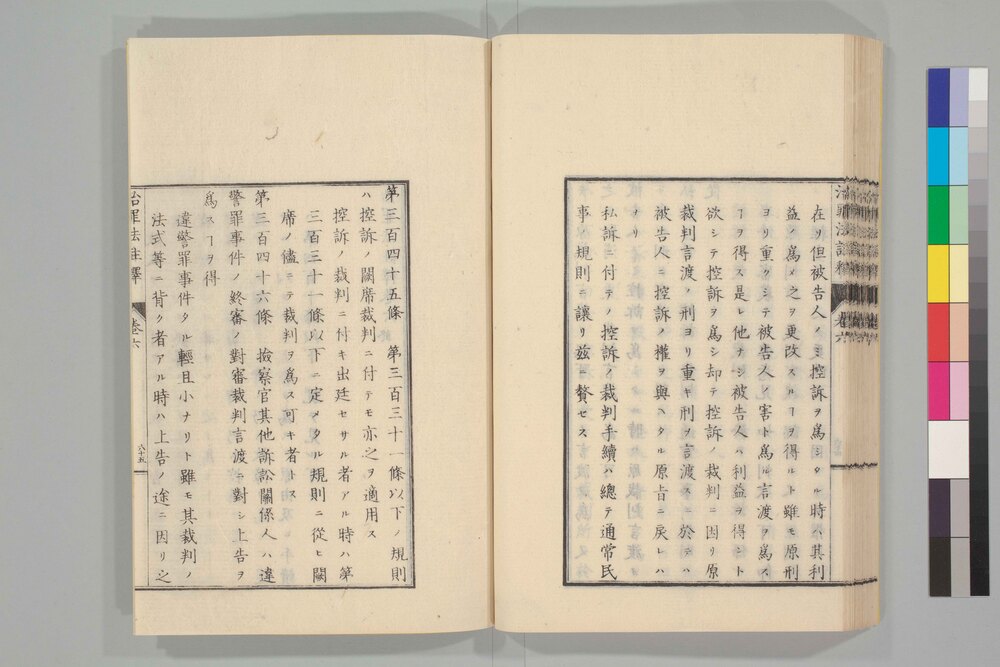 在リ但被告人ノミ控訴ヲ爲シタル時ハ其利
益ノ爲メ之ヲ更改スルヿヲ得ルト雖モ原刑
ヨリ重クシテ被告人ノ害ト爲ル言渡ヲ爲ス
ヿヲ得ス是レ他ナシ被告人ハ利益ヲ得ント
欲シテ控訴ヲ爲シ却テ控訴ノ裁判ニ因リ原
裁判言渡ノ刑ヨリ重キ刑ヲ言渡スニ於テハ
被告人ニ控訴ノ權ヲ與ヘタル原旨ニ戻レハ
ナリ
私訴ニ付テノ控訴ノ裁判手續ハ總テ通常民
事ノ規則ニ讓リ茲ニ贅セス
第三百四十五條 第三百三十一條以下ノ規則
ハ控訴ノ闕席裁判ニ付テモ亦之ヲ適用ス
控訴ノ裁判ニ付キ出廷セサル者アル時ハ第
三百三十一條以下ニ定メタル規則ニ從ヒ闕
席ノ儘ニテ裁判ヲ爲ス可キ者トス
第三百四十六條 撿察官其他訴訟關係人ハ違
警罪事件ノ終審ノ對審裁判言渡ニ對シ上告ヲ
爲スヿヲ得
違警罪事件タル輕且小ナリト雖モ其裁判ノ
法式等ニ背ク者アル時ハ上告ノ途ニ因リ之
治罪法註釋 卷六 六十五